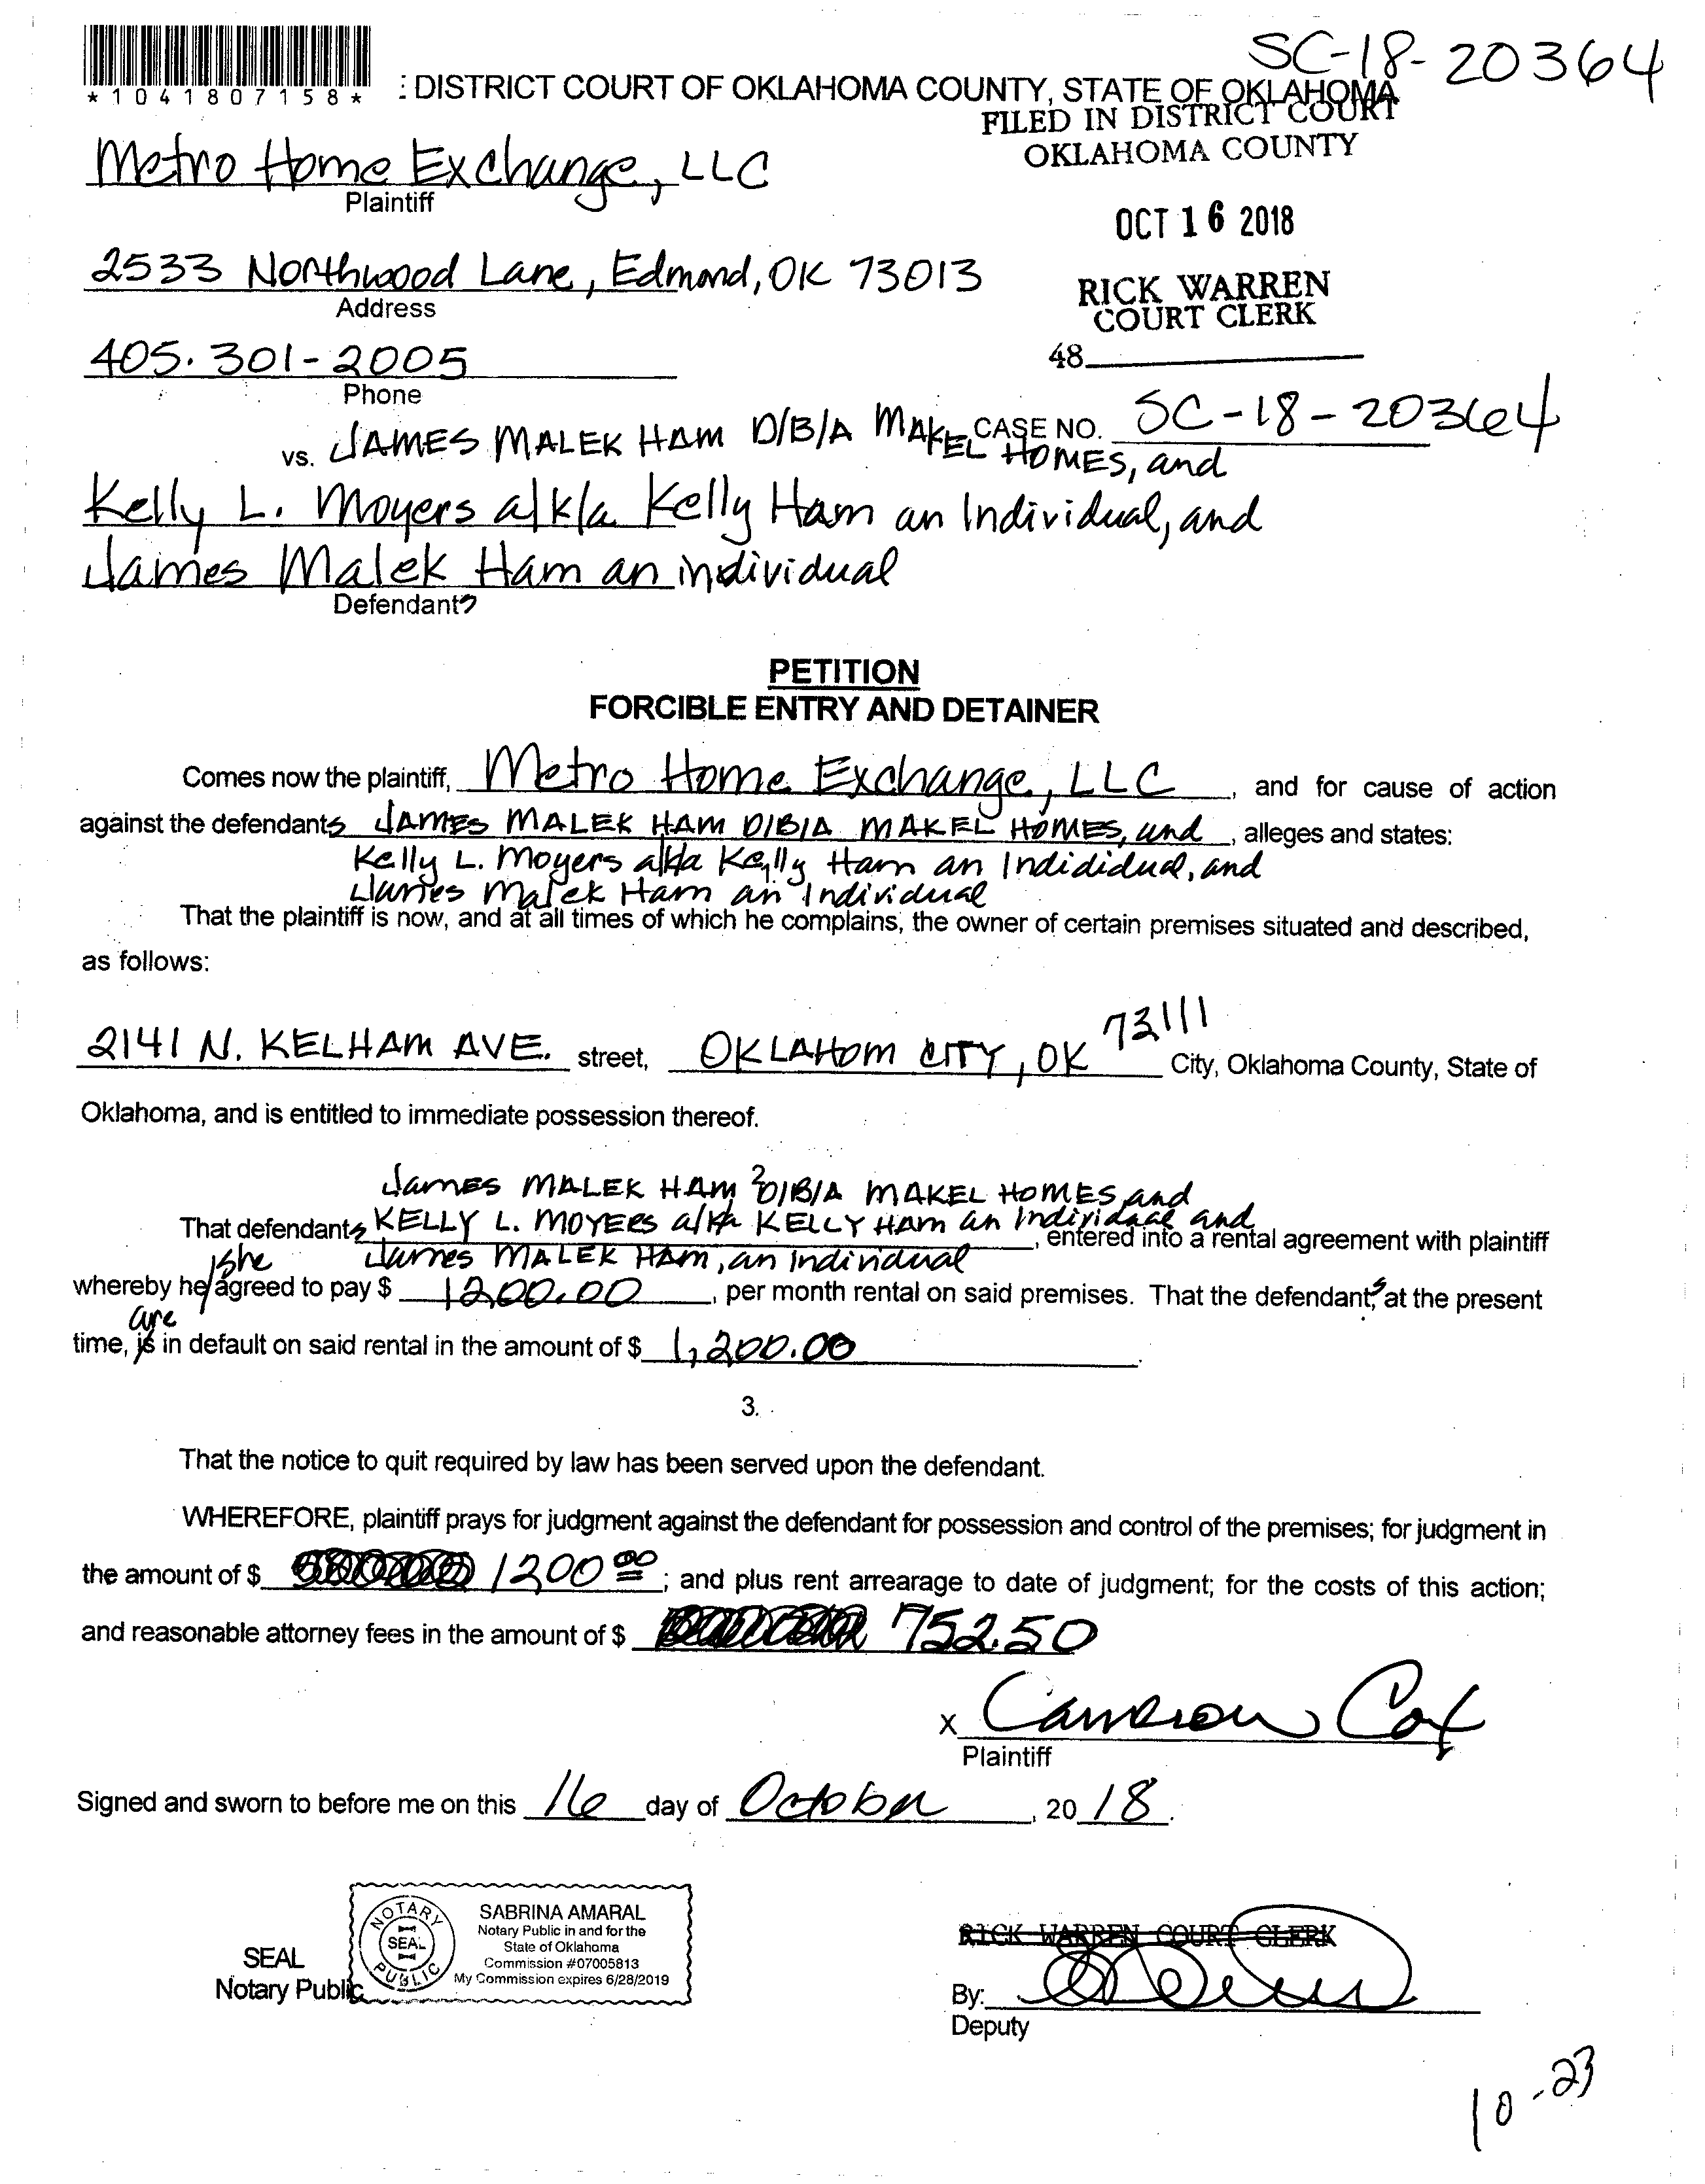 SC-18-20364
*1041807158*
: DISTRICT COURT OF OKLAHOMA COUNTY, STATE OF OKLAHOMA
FILED IN DISTRICT COURT
OKLAHOMA COUNTY
Metro Home Exchange, LLC
Plaintiff
OCT 16 2018
2533 Northwood Lane, Edmond, OK 73013
Address
RICK WARREN
COURT CLERK
405.301-2005
Phone
48
CASE NO. SC-18-20364
vs. JAMES MALEK HAM D/B/A MAKEL HOMES, and
Kelly L. Moyers a/k/a Kelly Ham an Individual, and
James Malek Ham an individual
Defendants
PETITION
FORCIBLE ENTRY AND DETAINER
Comes now the plaintiff, Metro Home Exchange, LLC, and for cause of action
against the defendants JAMES MALEK HAM D/B/A MAKEL HOMES, and, alleges and states:
Kelly L. Moyers a/k/a Kelly Ham an Indididual, and
James Malek Ham an Individual
That the plaintiff is now, and at all times of which he complains, the owner of certain premises situated and described,
as follows:
2141 N. KELHAM AVE. street, OKLAHOM CITY, OK 73111 City, Oklahoma County, State of
Oklahoma, and is entitled to immediate possession thereof.
James MALEK HAM D/B/A MAKEL HOMES and
2
That defendants KELLY L. MOYERS a/k/a KELLY HAM an Individual and, entered into a rental agreement with plaintiff
James MALEK HAM, an individual
whereby he/she agreed to pay $ 1200.00, per month rental on said premises. That the defendants, at the present
time, is are in default on said rental in the amount of $ 1,200.00.
3.
That the notice to quit required by law has been served upon the defendant.
WHEREFORE, plaintiff prays for judgment against the defendant for possession and control of the premises; for judgment in
the amount of $ 1200 00; and plus rent arrearage to date of judgment; for the costs of this action;
and reasonable attorney fees in the amount of $ 752.50
x Cameron Cox
Plaintiff
Signed and sworn to before me on this 16 day of October, 2018.
SEAL
Notary Public
NOTARY PUBLIC
SEAL
SABRINA AMARAL
Notary Public in and for the
State of Oklahoma
Commission #07005813
My Commission expires 6/28/2019
RICK WARREN COURT CLERK
By:
Deputy
10-23